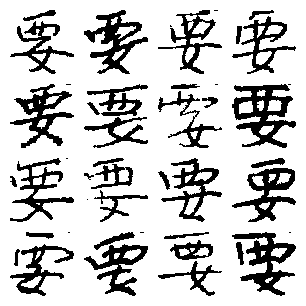 要要要要
要要要要
要要要要
要要要要